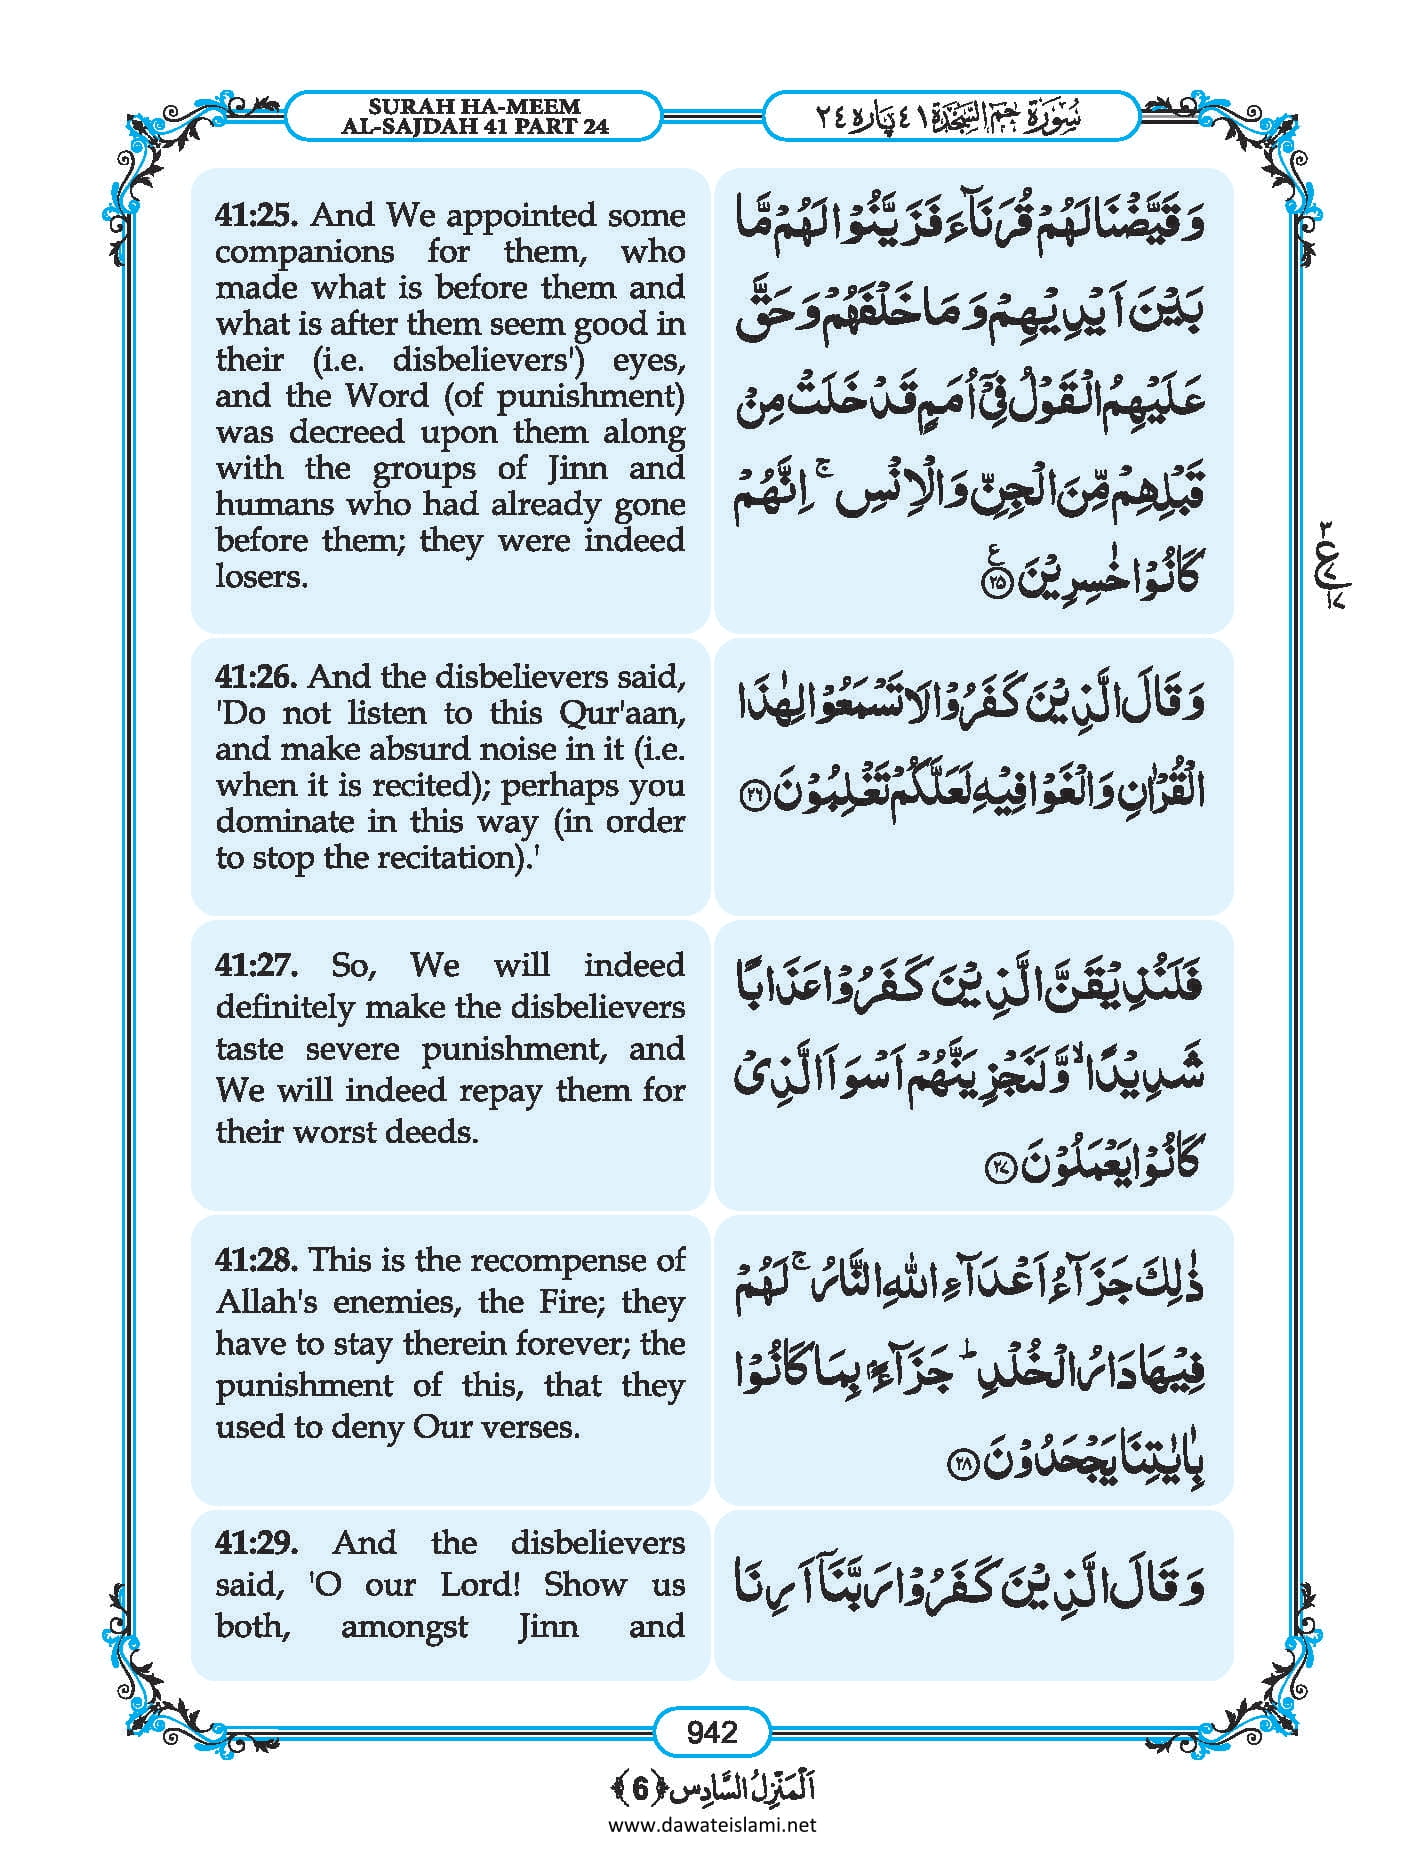 SURAH HA-MEEM
AL-SAJDAH 41 PART 24
سُوْرَةُ حٰمٓ السَّجْدَة ٤١ پاره ٢٤
41:25. And We appointed some
companions for them, who
made what is before them and
what is after them seem good in
their (i.e. disbelievers') eyes,
and the Word (of punishment)
was decreed upon them along
with the groups of Jinn and
humans who had already gone
before them; they were indeed
losers.
وَ قَيَّضْنَا لَهُمْ قُرَنَآءَ فَزَيَّنُوْا لَهُمْ مَّا
بَيْنَ اَيْدِيْهِمْ وَ مَا خَلْفَهُمْ وَ حَقَّ
عَلَيْهِمُ الْقَوْلُ فِيْۤ اُمَمٍ قَدْ خَلَتْ مِنْ
قَبْلِهِمْ مِّنَ الْجِنِّ وَ الْاِنْسِ ۚ اِنَّهُمْ
كَانُوْا خٰسِرِيْنَ ﴿۲۵﴾ ع
٣
ع
٧
١٧
41:26. And the disbelievers said,
'Do not listen to this Qur'aan,
and make absurd noise in it (i.e.
when it is recited); perhaps you
dominate in this way (in order
to stop the recitation).'
وَ قَالَ الَّذِيْنَ كَفَرُوْا لَا تَسْمَعُوْا لِهٰذَا
الْقُرْاٰنِ وَ الْغَوْا فِيْهِ لَعَلَّكُمْ تَغْلِبُوْنَ ﴿۲۶﴾
41:27. So, We will indeed
definitely make the disbelievers
taste severe punishment, and
We will indeed repay them for
their worst deeds.
فَلَنُذِيْقَنَّ الَّذِيْنَ كَفَرُوْا عَذَابًا
شَدِيْدًا ۙ وَّ لَنَجْزِيَنَّهُمْ اَسْوَاَ الَّذِيْ
كَانُوْا يَعْمَلُوْنَ ﴿۲۷﴾
41:28. This is the recompense of
Allah's enemies, the Fire; they
have to stay therein forever; the
punishment of this, that they
used to deny Our verses.
ذٰلِكَ جَزَآءُ اَعْدَآءِ اللّٰهِ النَّارُ ۚ لَهُمْ
فِيْهَا دَارُ الْخُلْدِ ؕ جَزَآءًۢ بِمَا كَانُوْا
بِاٰيٰتِنَا يَجْحَدُوْنَ ﴿۲۸﴾
41:29. And the disbelievers
said, 'O our Lord! Show us
both, amongst Jinn and
وَ قَالَ الَّذِيْنَ كَفَرُوْا رَبَّنَاۤ اَرِنَا
942
اَلْمَنْزِلُ السَّادِس ﴿6﴾
www.dawateislami.net